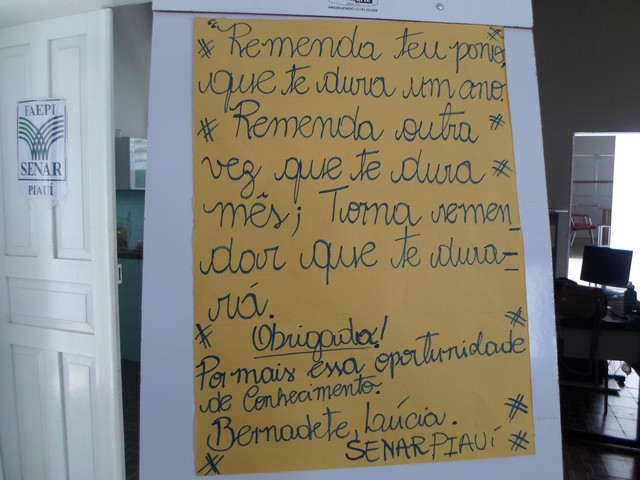 PRODUZINDO QUALIDADE
FAEPI
SENAR
PIAUÍ
"Remenda teu pano,
que te dura um ano.
# Remenda outra #
vez que te dura #
mês; Torna remen_
dar que te dura=
rá.
Obrigada!
Por mais essa oportunidade
de Conhecimento.
Bernadete, Laúcia.
SENAR PIAUÍ #